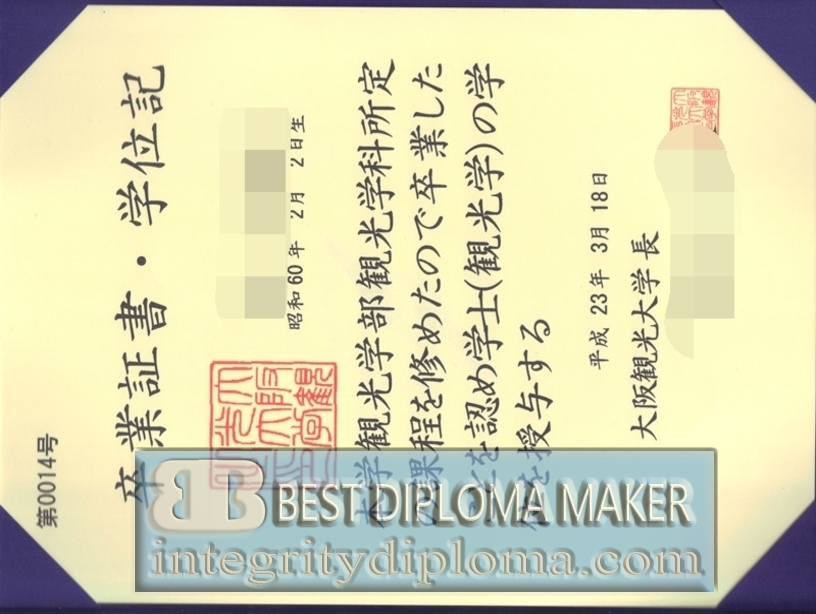 第0014号
卒業証書・学位記
昭和60年 2月 2日生
本学観光学部観光学科所定
の課程を修めたので卒業した
ことを認め学士(観光学)の学
位を授与する
平成 23年 3月 18日
大阪観光大学長
BEST DIPLOMA MAKER
integritydiploma.com